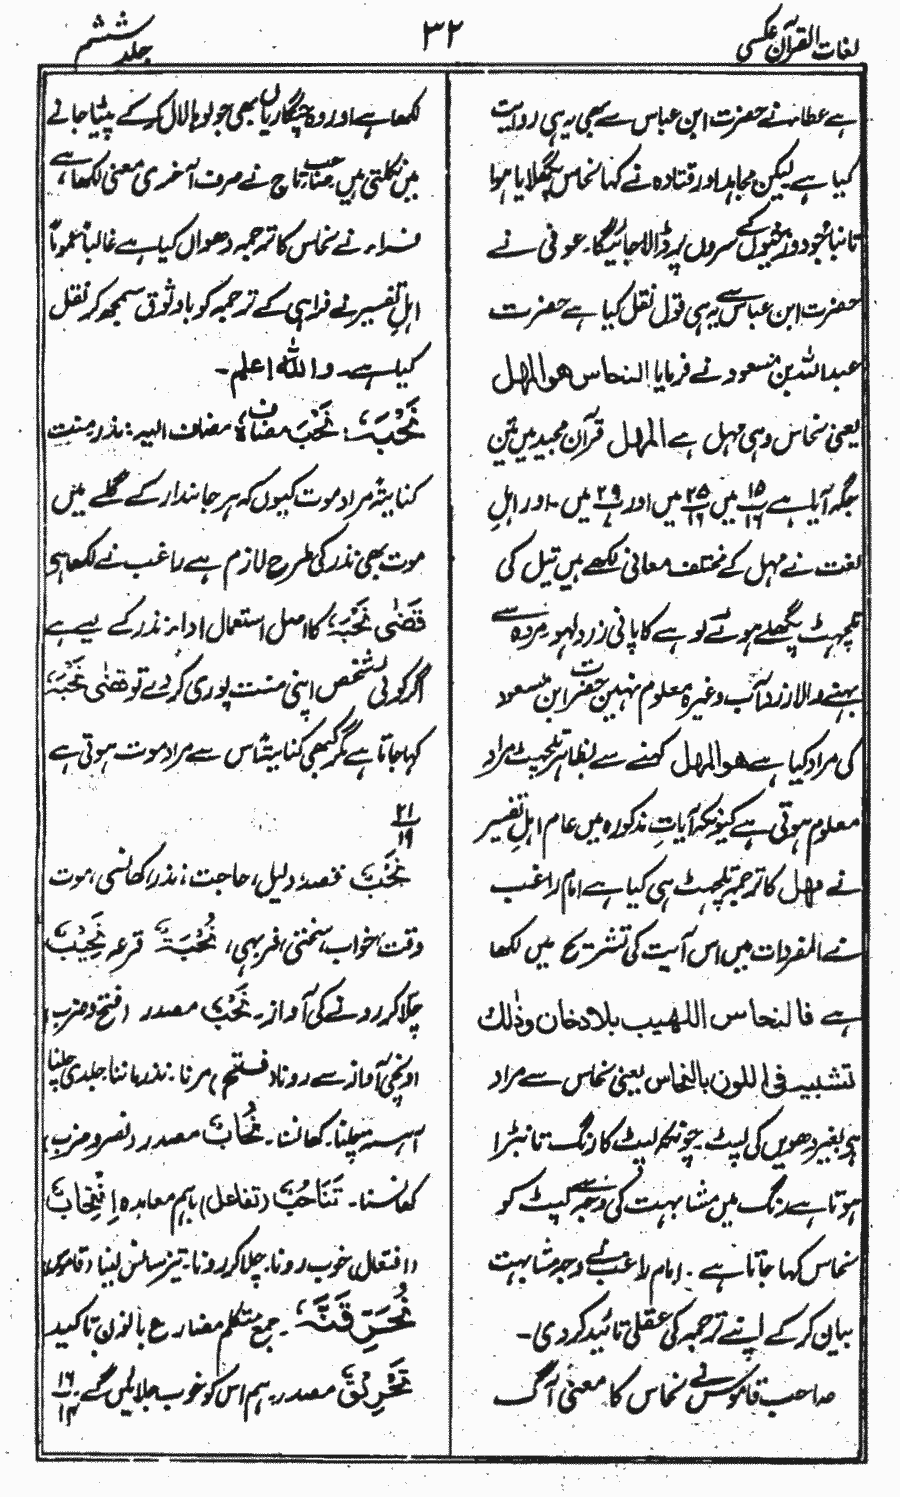 لغات القرآن عکسی
۳۲
جلد ششم
ہے عطاء نے حضرت ابن عباس سے بھی یہی روایت
کیا ہے لیکن مجاہد اور قتادہ نے کہا نحاس پگھلایا ہوا
تانبا خود دوزخیوں کے سروں پر ڈالا جائیگا۔ عوفی نے
حضرت ابن عباس سے یہی قول نقل کیا ہے حضرت
عبداللہ بن مسعود نے فرمایا النحاس ھو المھل
یعنی نحاس وہی مہل ہے المھل قرآن مجید میں تین
جگہ آیا ہے ۱۵/۱۶ میں ۲۵/۱۶ میں اور ۲۹/ میں۔ اور اہلِ
لغت نے مہل کے مختلف معانی لکھے ہیں تیل کی
تلچھٹ پگھلے ہوئے لوہے کا پانی زرد لہو۔ مردہ سے
بہنے والا زرد آب وغیرہ معلوم نہیں حضرت ابن مسعود
کی مراد کیا ہے ھو المھل کہنے سے بظاہر تلچھٹ مراد
معلوم ہوتی ہے کیونکہ آیاتِ مذکورہ میں عام اہلِ تفسیر
نے مہل کا ترجمہ تلچھٹ ہی کیا ہے امام راغب
نے المفردات میں اس آیت کی تشریح میں لکھا
ہے فالنحاس اللھیب بلا دخان وذٰلک
تشبیہ فی اللون بالنحاس یعنی نحاس سے مراد
ہی بغیر دھویں کی لپٹ۔ چونکہ لپٹ کا رنگ تانبڑا
ہوتا ہے رنگ میں مشابہت کی وجہ سے لپٹ کو
نحاس کہا جاتا ہے۔ امام راغب نے وجہ مشابہت
بیان کر کے اپنے ترجمہ کی عقلی تائید کر دی۔
صاحب قاموس نے نحاس کا معنی آگ
لکھا ہے اور وہ چنگاریاں بھی جو لوہا لال کر کے پیٹا جانے
میں نکلتی ہیں جناب تاج نے صرف آخری معنی لکھا ہے
فراء نے نحاس کا ترجمہ دھواں کیا ہے غالباً عموماً
اہلِ تفسیر نے فراہی کے ترجمہ کو باوثوق سمجھ کر نقل
کیا ہے۔ واللہ اعلم۔
نَحْبَہٗ: نَحْبَ مضاف ہٗ مضاف الیہ: نذر منت
کنایۃً مراد موت کیوں کہ ہر جاندار کے گلے میں
موت بھی نذر کی طرح لازم ہے راغب نے لکھا ہی
قَضٰی نَحْبَہٗ کا اصل استعمال اداء نذر کے لیے ہے
اگر کوئی شخص اپنی منت پوری کر دے تو قضٰی نَحْبَہٗ
کہا جاتا ہے مگر کبھی کنایۃً اس سے مراد موت ہوتی ہے
۲۱/۱۹
نَحْبٌ قصد، دلیل، حاجت، نذر، کھانسی، موت
وقت، خواب، سختی، فربہی، نُحْبَۃٌ قرعہ نَحِیْبٌ
چلا کر رونے کی آواز۔ نَحْبٌ مصدر (فتح وضرب)
اونچی آواز سے رونا (فتح) مرنا۔ نذر ماننا جلدی چلنا
آہستہ چلنا۔ کھانسنا۔ نُحَابٌ مصدر (نصر وضرب)
کھانسنا۔ تَنَاحُبٌ (تفاعل) باہم معاہدہ اِنْتِحَابٌ
(افتعال) خوب رونا۔ چلا کر رونا۔ تیز سانس لینا (قاموس)
نُحَرِّقَنَّہٗ۔ جمع متکلم مضارع بانون تاکید
تَحْرِیْقٌ مصدر۔ ہم اس کو خوب جلا لیں گے ۱۶/۱۴